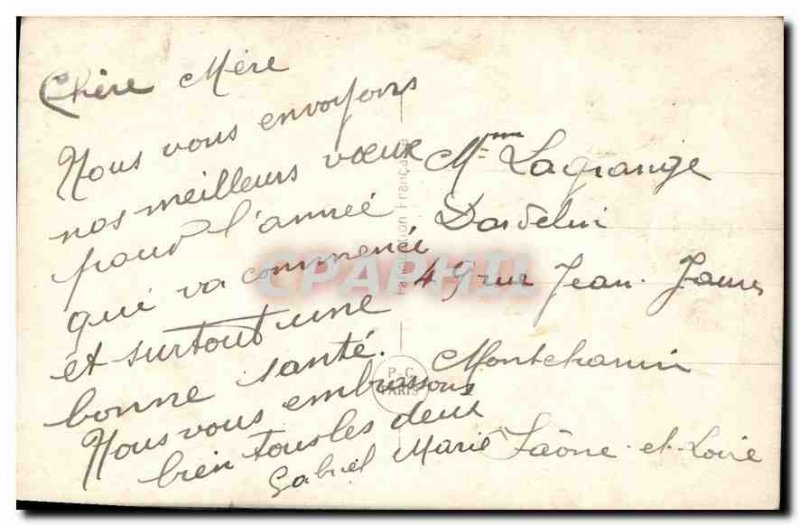 Chère Mère
Nous vous envoyons
nos meilleurs vœux
pour l'année
qui va commencé
et surtout une
bonne santé.
Nous vous embrassons
bien tous les deux
Gabriel Marie
Mme Lagrange
Dardelin
49 rue Jean Jaures
Montchanin
Saône-et-Loire
P-C
PARIS
Française
CPAPHIL